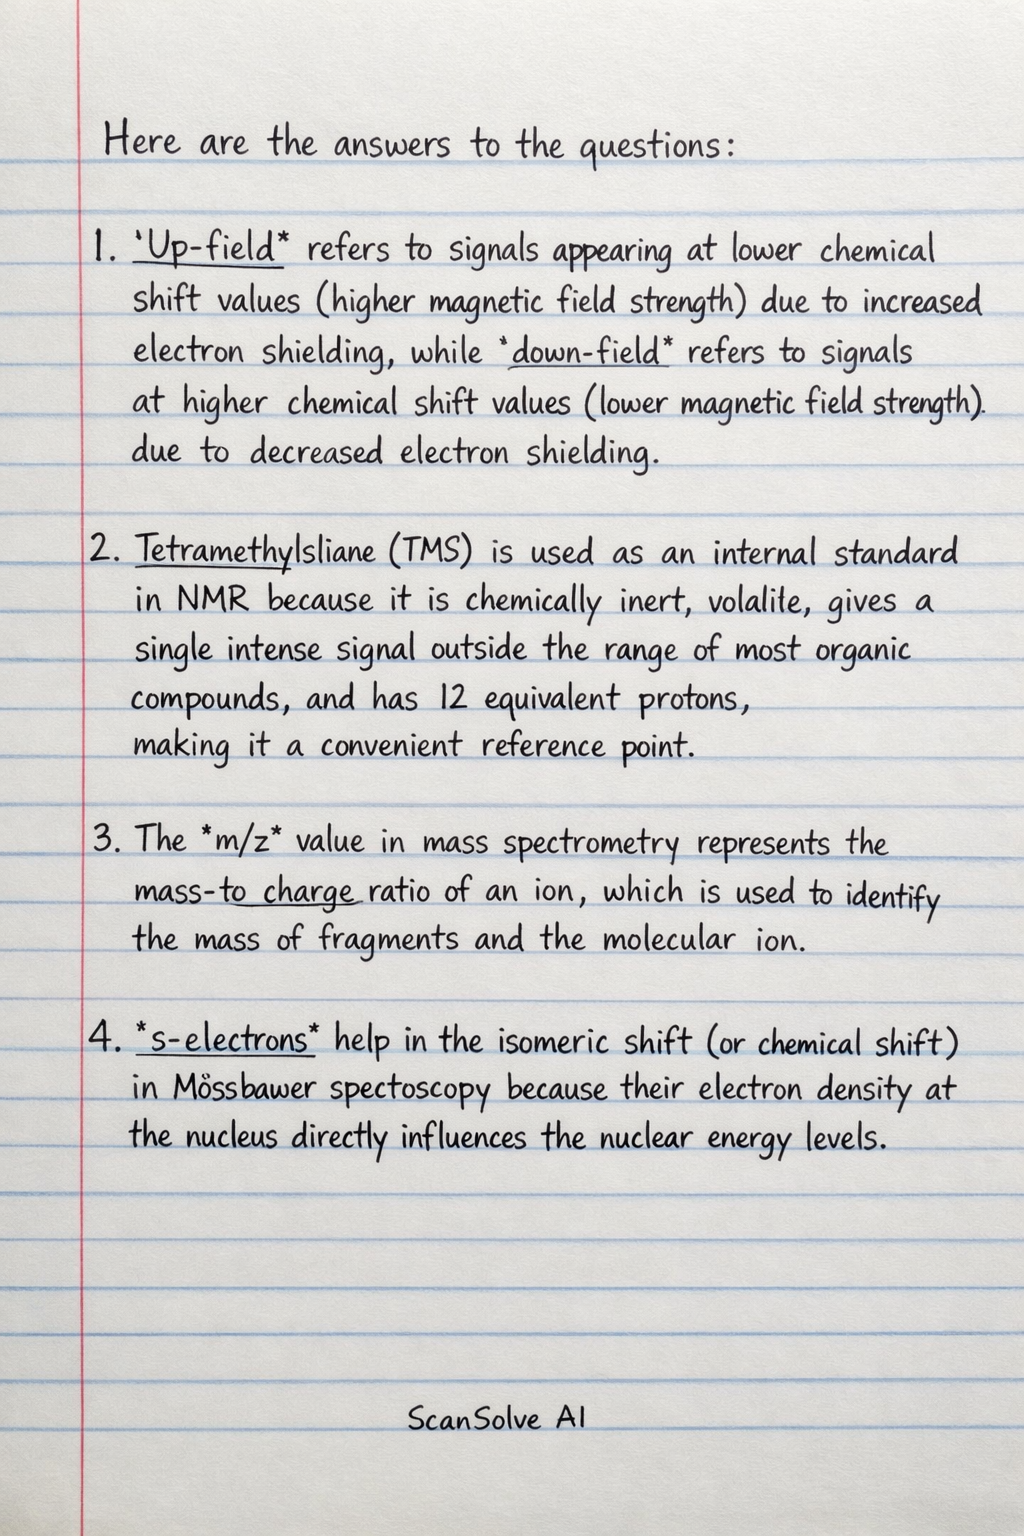 Here are the answers to the questions:
1. 'Up-field* refers to signals appearing at lower chemical
shift values (higher magnetic field strength) due to increased
electron shielding, while *down-field* refers to signals
at higher chemical shift values (lower magnetic field strength).
due to decreased electron shielding.
2. Tetramethylsliane (TMS) is used as an internal standard
in NMR because it is chemically inert, volalite, gives a
single intense signal outside the range of most organic
compounds, and has 12 equivalent protons,
making it a convenient reference point.
3. The *m/z* value in mass spectrometry represents the
mass-to charge ratio of an ion, which is used to identify
the mass of fragments and the molecular ion.
4. *s-electrons* help in the isomeric shift (or chemical shift)
in Mössbawer spectoscopy because their electron density at
the nucleus directly influences the nuclear energy levels.
ScanSolve AI